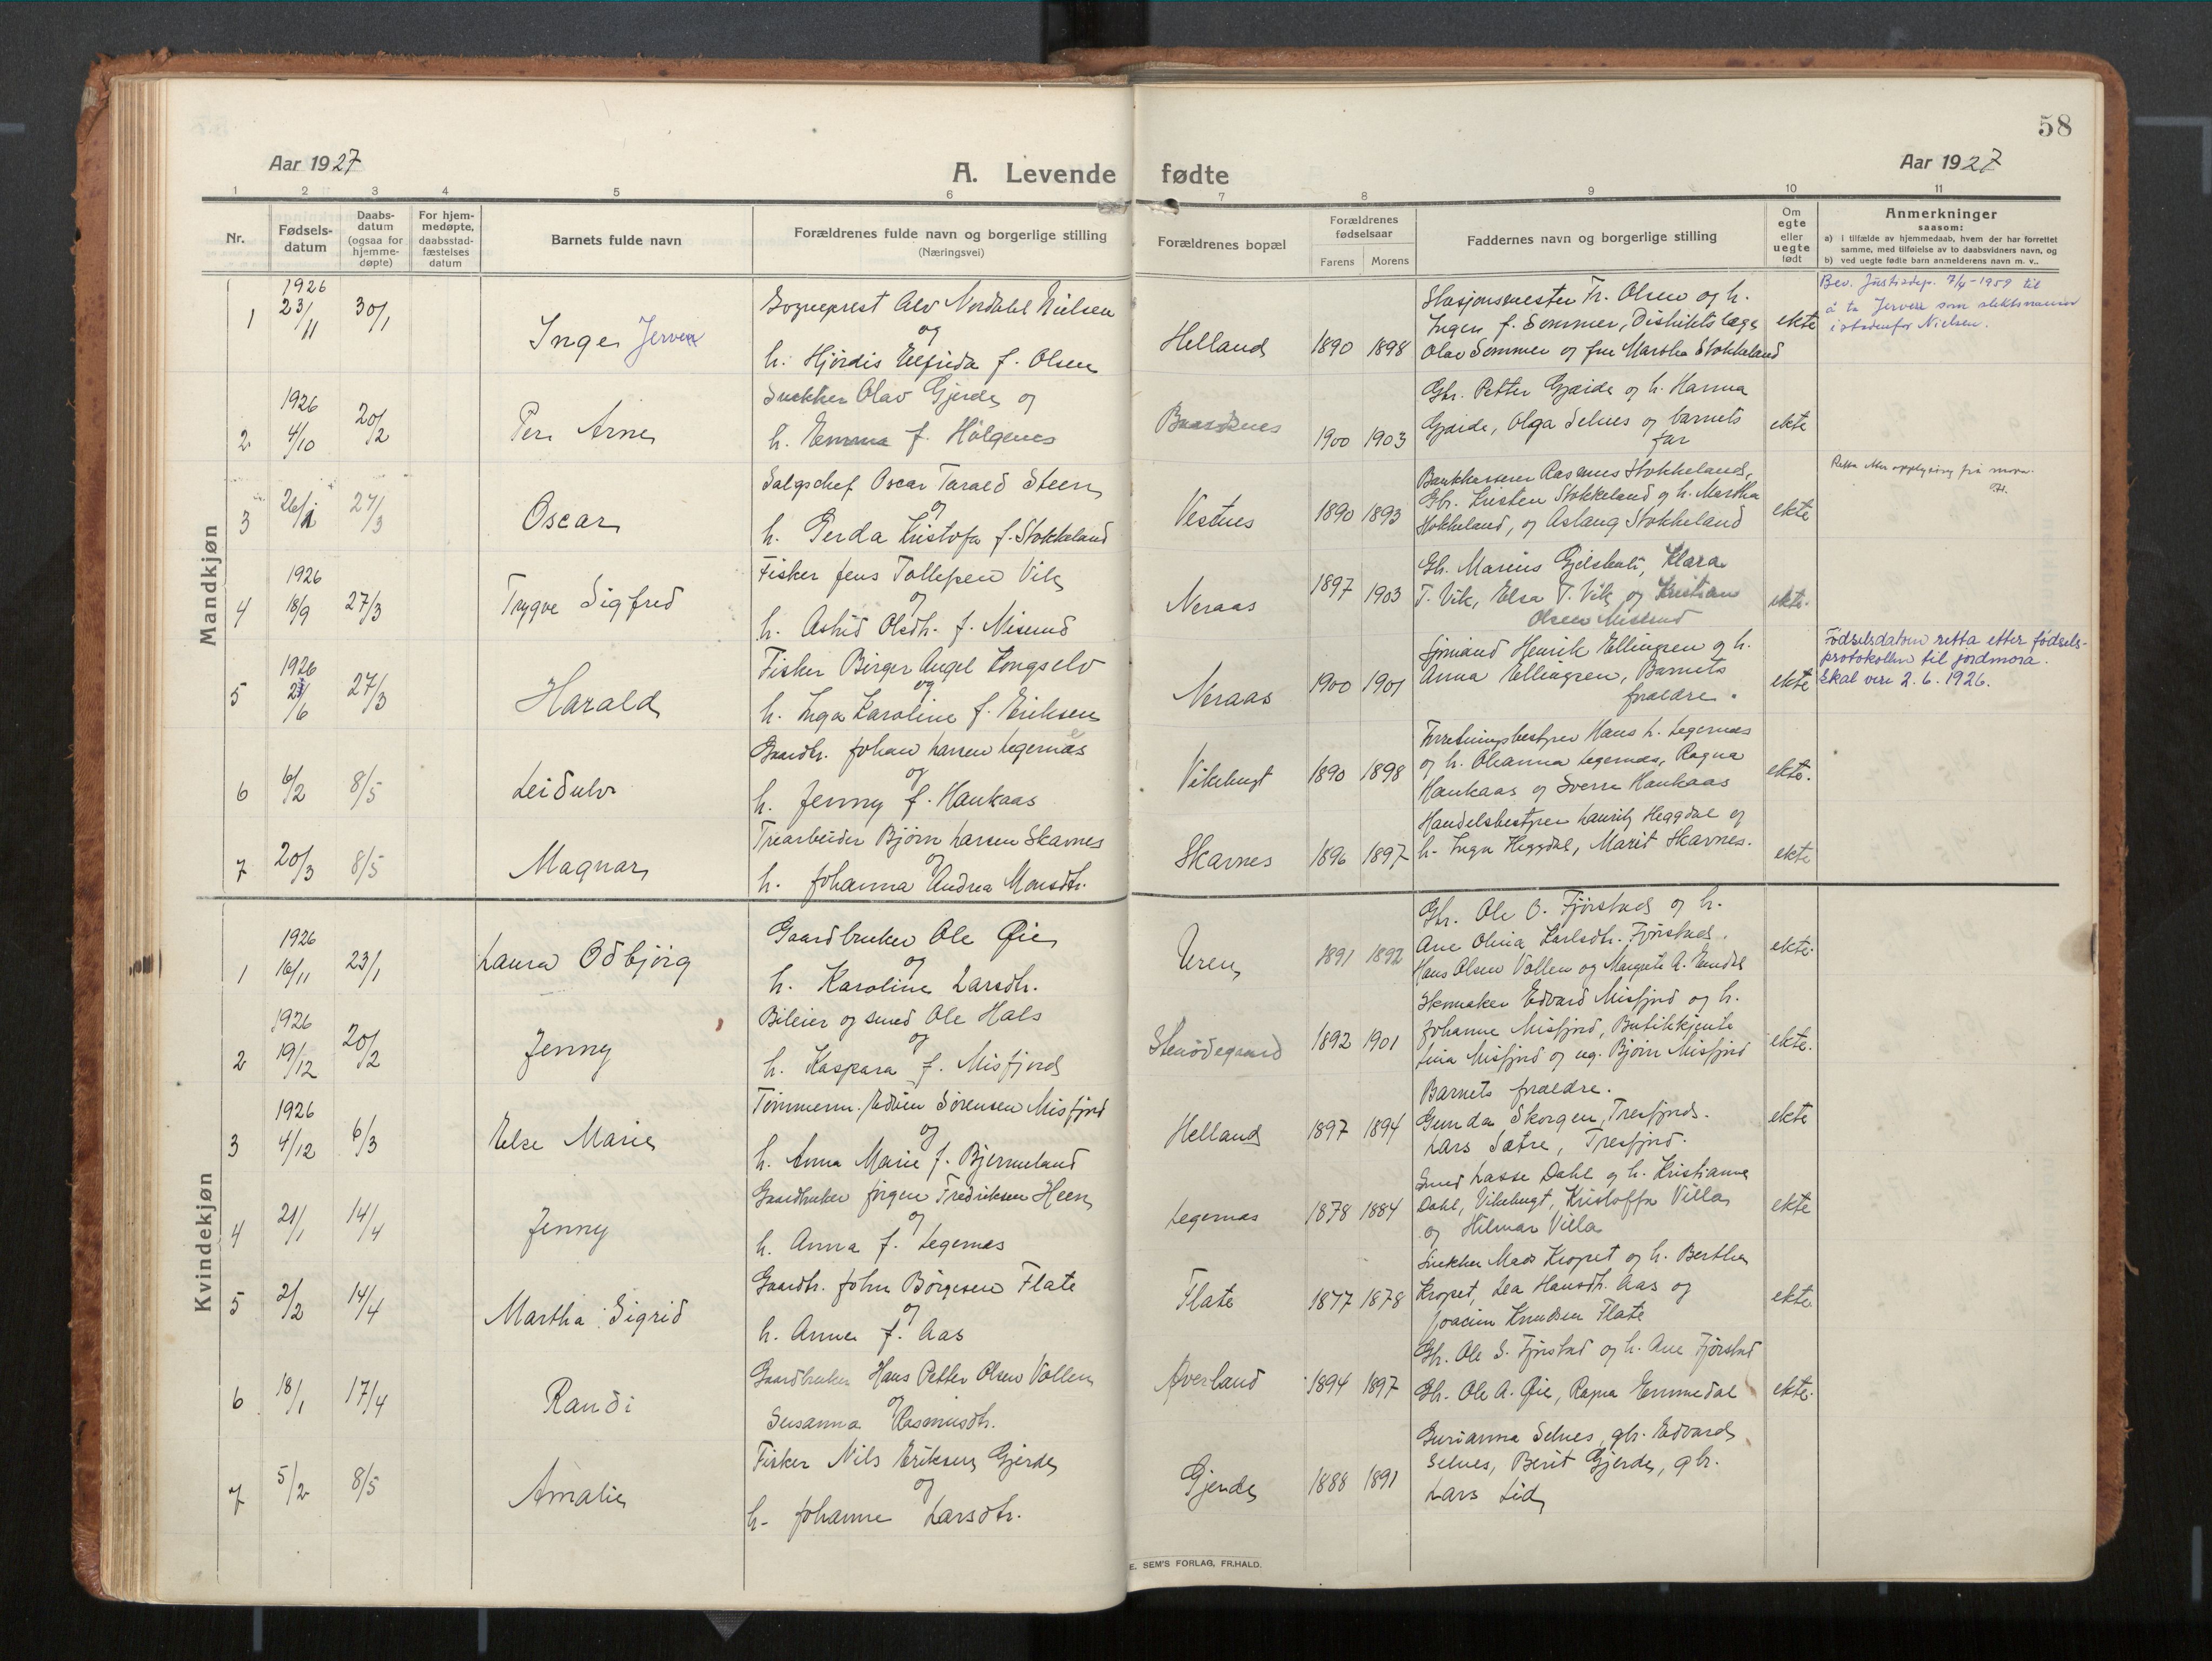 58
Aar 1927
A. Levende fødte
Aar 1927
1 2 3 4 5 6 7 8 9 10 11
Nr.
Fødsels-
datum
Daabs-
datum
(ogsaa for
hjemme-
døpte)
For hjem-
medøpte,
daabsstad-
fæstelses
datum
Barnets fulde navn
Forældrenes fulde navn og borgerlige stilling
(Næringsvei)
Forældrenes bopæl
Forældrenes
fødselsaar
Farens Morens
Faddernes navn og borgerlige stilling
Om
egte
eller
uegte
født
Anmerkninger
saasom:
a) i tilfælde av hjemmedaab, hvem der har forrettet
samme, med tilføielse av to daabsvidners navn, og
b) ved uegte fødte barn anmelderens navn m. v..
Mandkjøn
1
1926
23/11
30/1
Inger Jerven
Sogneprest Alv Nordahl Nielsen
og
h. Hjørdis Elfrida f. Olsen
Helland
1890 1898
Stasjonsmester Tr. Olsen og h.
Inger f. Sommer, Distriktslæge
Olav Sommer og fru Martha Stokkeland
ekte
Bev. Justisdep. 7/4-1959 til
å ta Jerven som slektsnamn
istadenfor Nielsen.
2
1926
4/10
20/2
Per Arne
Snekker Olav Gjerde og
h. Emma f. Helgenes
1900 1903
Gbr. Petter Gjerde og h. Hanna
Gjerde, Olga Selnes og barnets
far
ekte
3
26/1
27/3
Oscar
Salgschef Oscar Tarald Steen
og
h. Gerda Kristofa f. Stokkeland
Vestnes
1890 1893
Bankkasserer Rasmus Stokkeland,
Gbr. Kristen Stokkeland og h. Martha
Stokkeland, og Aslaug Stokkeland
ekte
Retta etter opplysning frå mora.
4
1926
18/9
27/3
Trygve Sigfred
Fisker Jens Tollefsen Vik
og
h. Astrid Olsdtr. f. Misund
Neraas
1897 1903
Gbr. Marius Gjelsten, Klara
T. Vik, Elsa T. Vik og Kristian
Olsen Misund
ekte.
5
1926
2/6
27/3
Harald
Fisker Birger Angel Kongselv
og
h. Inga Karoline f. Eriksen
Neraas
1900 1901
Sjømand Henrik Ellingsen og h.
Anna Ellingsen, Barnets
foreldre.
ekte
Fødselsdatoen retta etter fødsels-
protokollen til jordmora.
Skal vere 2.6.1926.
6
6/2
8/5
Leidulv
Gaardbr. Johan Larsen Legernæs
og
h. Jenny f. Haukaas
Vikebugt
1890 1898
Forretningsbestyrer Hans L. Legernæs
og h. Oleanna Legernæs, Ragna
Haukaas og Sverre Haukaas
ekte.
7
20/3
8/5
Magnar
Træarbeider Bjørn Larsen Skarnes
og
h. Johanna Andrea Monsdtr.
Skarnes
1896 1897
Handelsbestyrer Lauritz Heggdal og
h. Inga Heggdal, Marit Skarnes.
ekte
Kvindekjøn
1
1926
16/11
23/1
Laura Odbjørg
Gaardbruker Ole Øie
og
h. Karoline Larsdtr.
Uren
1891 1892
Gbr. Ole O. Fjørstad og h.
Ane Olina Karlsdtr. Fjørstad.
Hans Olsen Vollen og Margrete A. Emdal
ekte.
2
1926
19/12
20/2
Jenny
Bileier og smed Ole Hals
og
h. Kaspara f. Misfjord
Stenødegaard
1892 1901
Skomaker Edvard Misfjord og h.
Johanne Misfjord, Butikkjente
Lina Misfjord og ug. Bjørn Misfjord
ekte.
3
1926
4/12
6/3
Else Marie
Tømmerm. Edvin Sørensen Misfjord
og
h. Anna Marie f. Bjermeland
Helland
1897 1894
Barnets foreldre.
Gunda Skorgen, Tresfjord.
Lars Sætre, Tresfjord.
ekte
4
21/1
14/4
Jenny
Gaardbruker Jørgen Fredriksen Heen
og
h. Anna f. Legernes
Legernes
1878 1884
Smed Lasse Dahl og h. Kristianne
Dahl, Vikebugt, Kristoffa Villa
og Hilmar Villa
ekte
5
2/2
14/4
Martha Sigrid
Gaardbr. John Børgesen Flate
og
h. Anne f. Aas
Flate
1877 1878
Snekker Mads Kropet og h. Berthe
Kropet, Lea Hansdtr. Aas og
Joacim Knudsen Flate
ekte.
6
18/1
17/4
Randi
Gaardbruker Hans Petter Olsen Vollen
og
Susanna Rasmusdtr.
Øverland
1894 1897
Gbr. Ole S. Fjørstad og h. Ane Fjørstad
Gbr. Ole A. Øie, Ragna Emmedal
ekte.
7
5/2
8/5
Amalie
Fisker Nils Eriksen Gjerde
og
h. Johanne Larsdtr.
Gjerde
1888 1891
Gurianna Selnes, gbr. Edvard
Selnes, Berit Gjerde, gbr.
Lars Lid
E. SEM'S FORLAG, FR.HALD.